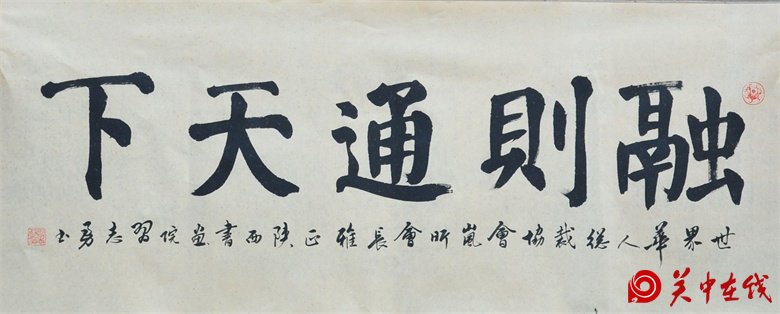 融則通天下
世界華人総裁協會嵐昕會長雅正陕西書畫院習志勇书
关中在线